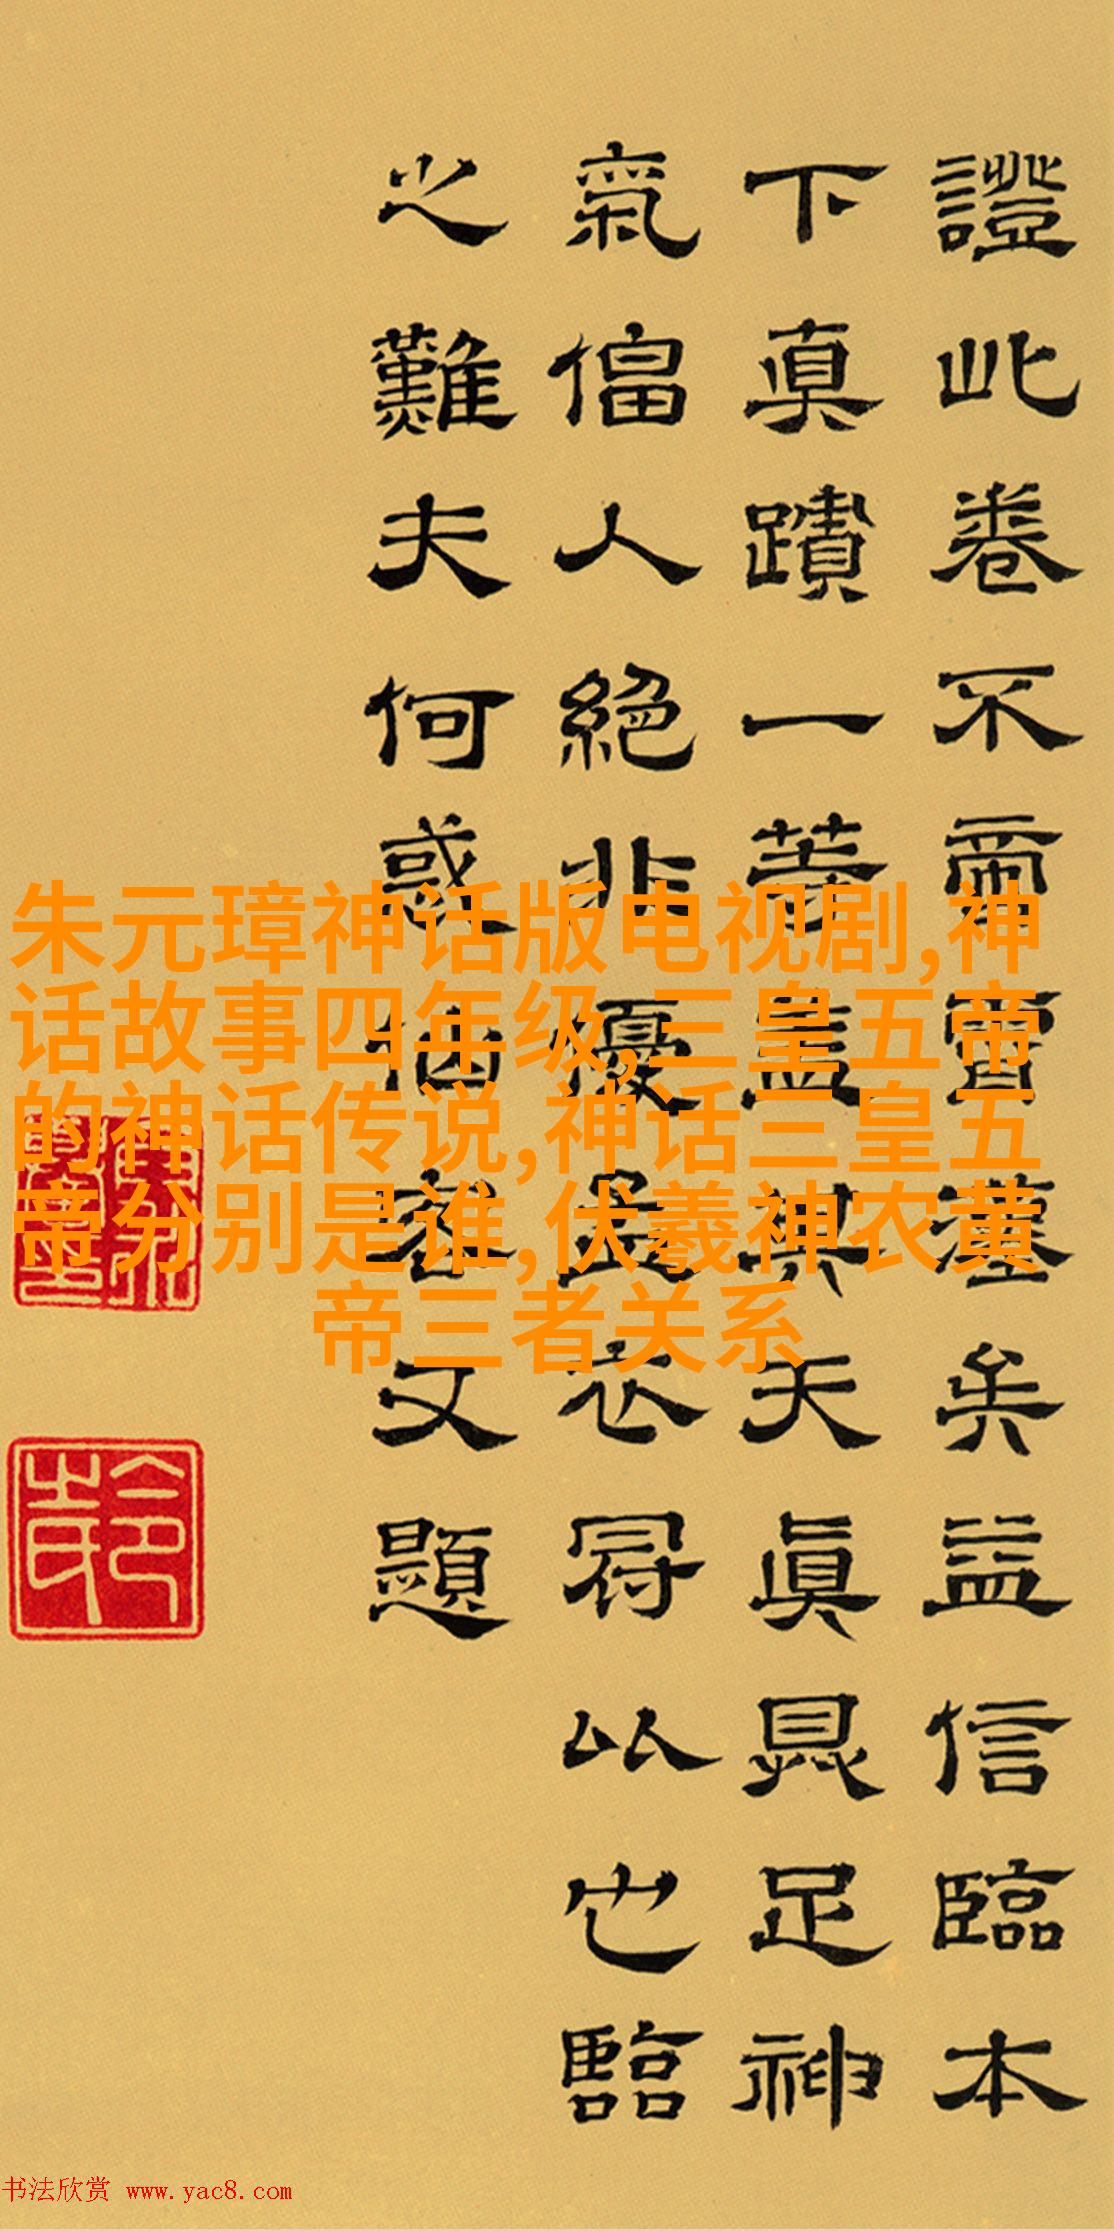 證此卷不啻霄壤矣益信臨本
下真蹟一等盖其天真具足神
氣偪人絕非優孟衣冠以也臨
之難夫何惑文題
朱元璋神话版电视剧,神
话故事四年级,三皇五帝
的神话传说,神话三皇五
帝分别是谁,伏羲神农黄
帝三者关系
书法欣赏 www.yac8.com